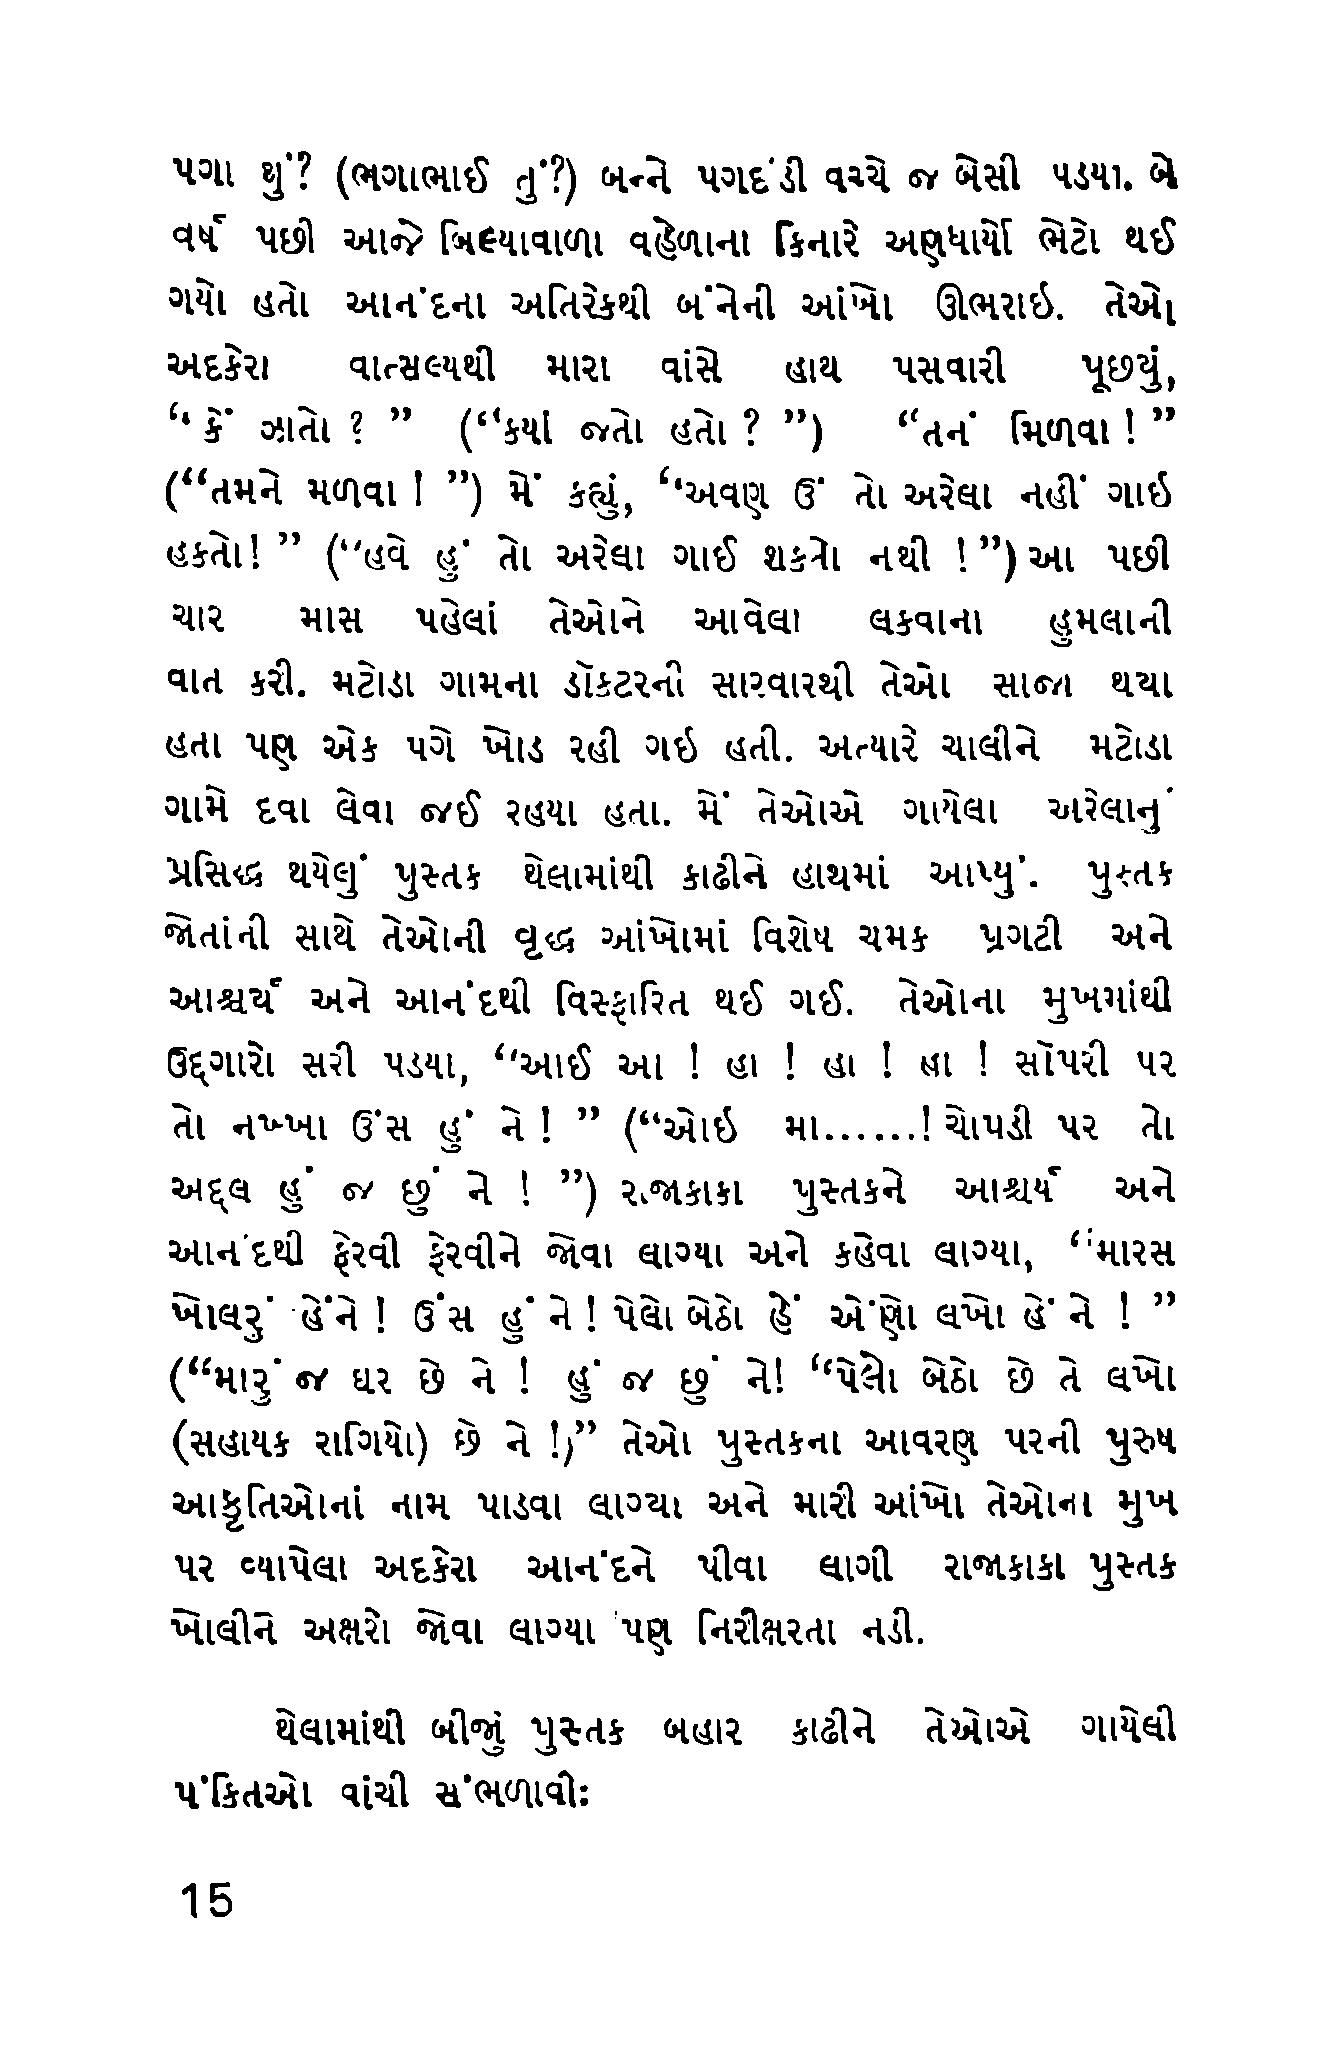 પગા થું? (ભગાભાઈ તું?) બન્ને પગદંડી વચ્ચે જ બેસી પડયા. બે
વર્ષ પછી આજે બિલ્યાવાળા વહેળાના કિનારે અણધાર્યો ભેટો થઈ
ગયો હતો આનંદના અતિરેકથી બંનેની આંખો ઊભરાઇ. તેઓ
અદકેરા વાત્સલ્યથી મારા વાંસે હાથ પસવારી પૂછયું,
“કેં ઝાતો ? ” (“કયાં જતો હતો ? ”) “તનં મિળવા ! ”
(“તમને મળવા ! ”) મેં કહ્યું, “અવણ ઉં તો અરેલા નહીં ગાઇ
હકતો! ” (“હવે હું તો અરેલા ગાઈ શકતો નથી ! ”) આ પછી
ચાર માસ પહેલાં તેઓને આવેલા લકવાના હુમલાની
વાત કરી. મટોડા ગામના ડૉકટરની સારવારથી તેઓ સાજા થયા
હતા પણ એક પગે ખોડ રહી ગઇ હતી. અત્યારે ચાલીને મટોડા
ગામે દવા લેવા જઈ રહયા હતા. મેં તેઓએ ગાયેલા અરેલાનું
પ્રસિદ્ધ થયેલું પુસ્તક થેલામાંથી કાઢીને હાથમાં આપ્યું. પુસ્તક
જોતાંની સાથે તેઓની વૃદ્ધ આંખોમાં વિશેષ ચમક પ્રગટી અને
આશ્ચર્ય અને આનંદથી વિસ્ફારિત થઈ ગઈ. તેઓના મુખમાંથી
ઉદ્દગારો સરી પડયા, “આઈ આ ! હા ! હા ! હા ! સૉપરી પર
તો નખ્ખા ઉંસ હું ને ! ” (“ઓઇ મા......! ચોપડી પર તો
અદ્દલ હું જ છું ને ! ”) રાજાકાકા પુસ્તકને આશ્ચર્ય અને
આનંદથી ફેરવી ફેરવીને જોવા લાગ્યા અને કહેવા લાગ્યા, “મારસ
ખોલરું હેંને ! ઉંસ હું ને ! પેલો બેઠો હેં એંણો લખો હેં ને ! ”
(“મારું જ ઘર છે ને ! હું જ છું ને! “પેલો બેઠો છે તે લખો
(સહાયક રાગિયો) છે ને !)” તેઓ પુસ્તકના આવરણ પરની પુરુષ
આકૃતિઓનાં નામ પાડવા લાગ્યા અને મારી આંખો તેઓના મુખ
પર વ્યાપેલા અદકેરા આનંદને પીવા લાગી રાજાકાકા પુસ્તક
ખોલીને અક્ષરો જોવા લાગ્યા પણ નિરીક્ષરતા નડી.
થેલામાંથી બીજું પુસ્તક બહાર કાઢીને તેઓએ ગાયેલી
પંકિતઓ વાંચી સંભળાવી:
15